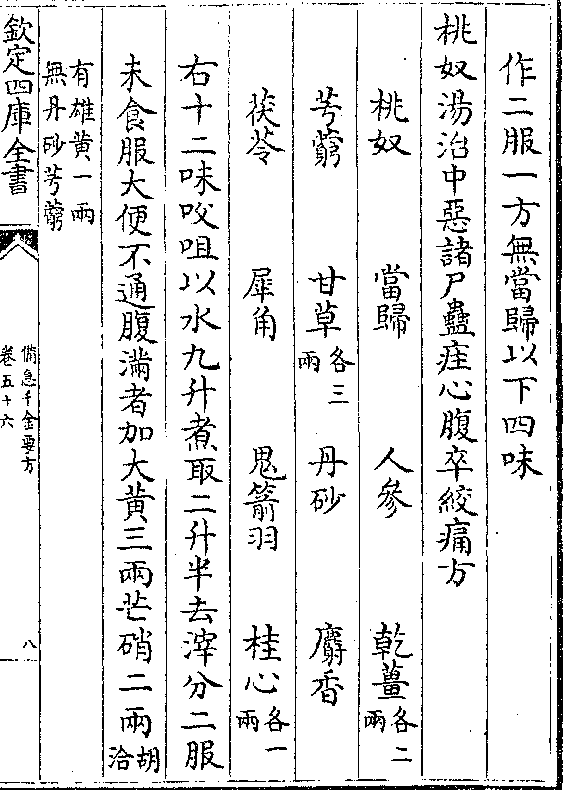 作二服一方無當歸以下四味
桃奴湯治中惡諸尸蠱疰心腹卒絞痛方
桃奴 當歸 人參 乾薑各二兩
芎藭 甘草各三兩 丹砂 麝香
茯苓 犀角 鬼箭羽 桂心各一兩
右十二味㕮咀以水九升煮取二升半去滓分二服
未食服大便不通腹滿者加大黄三兩芒硝二兩胡洽
有雄黄一兩
無丹砂芎藭
欽定四庫全書
備急千金要方
卷五十六
八